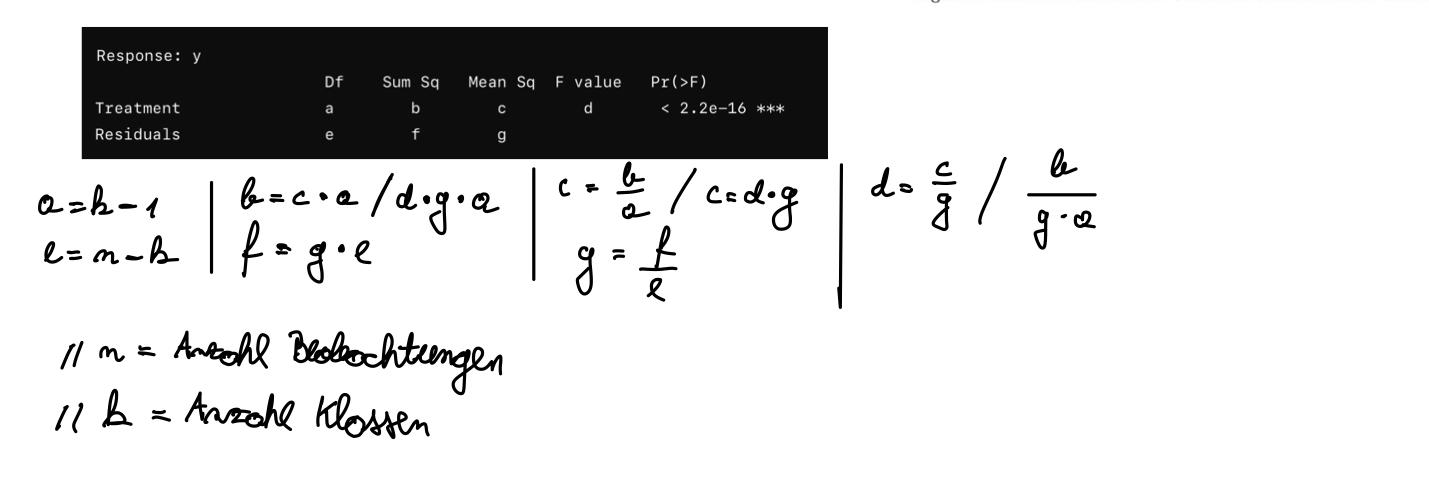 Response: y
Df Sum Sq Mean Sq F value Pr(>F)
Treatment a b c d < 2.2e-16 ***
Residuals e f g
a = k - 1 | b = c · a / d · g · a | c = b/a / c = d · g | d = c/g / b/(g · a)
e = n - k | f = g · e | g = f/e
// n = Anzahl Beobachtungen
// k = Anzahl Klassen